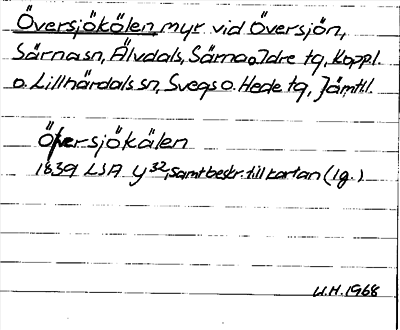 Översjökölen myr vid Översjön,
Särna sn, Älvdals, Särna o. Idre tg, Koppl.
o. Lillhärdals sn, Svegs o. Hede tg, Jämtl.
Öfversjökälen
1839 LSA Y 32, samt beskr. till kartan (1 g.)
U.H. 1968